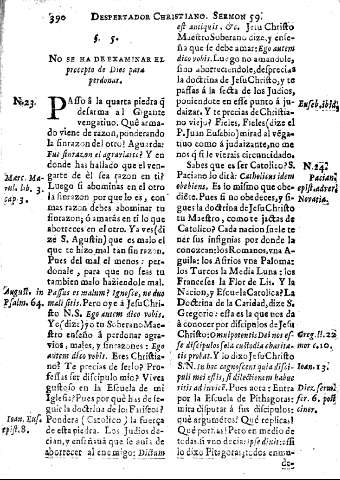 390 DESPERTADOR CHRISTIANO. SERMON 59.
§. 5.
NO SE HA DE EXAMINAR EL
precepto de Dios para
perdonar.
N. 23.
PAsso à la quarta piedra q̃
desarma al Gigante
vengativo. Què arma-
do viene de razon, ponderando
la sinrazon del otro! Aguarda:
Fue sinrazon el agraviarte? Y en
donde has hallado que el ven-
garte de èl sea razon en ti?
Marc. Ma-
rul. lib. 3.
cap. 3.
Luego si abominas en el otro
la sinrazon por que lo es, con
mas razon debes abominar tu
sinrazon; ò amaràs en ti lo que
aborreces en el otro. Ya ves (di-
zè S. Agustin) que es malo el
que te hizo mal tan sin razon.
Pues del mal el menos: per-
donale, para que no seas tu
tambien malo haziendole mal.
August. in
Psalm. 64.
Passus es malum? Ignosce, ne duo
mali sitis. Pero oye à Jesu Chris-
to N. S. Ego autem dico vobis.
Yo (dize) yo tu Soberano Mae-
stro enseño à perdonar agra-
vios, males, y sinrazones: Ego
autem dico vobis. Eres Christia-
no? Te precias de serlo? Pro-
fessas ser discipulo mio? Vives
gustoso en la Escuela de mi
Iglesia? Pues por què has de se-
guir la doctrina de los Fariseos?
Ioan. Eus.
epist. 8.
Pondera (Catolico) la fuerça
de esta piedra. Los Judios de-
cian, y enseñavã que se avia de
aborrecer al enemigo: Dictum
est antiquis. &c. Jesu Christo
Maestro Soberano dize, y ense-
ña que se debe amar: Ego autem
dico vobis. Luego no amandole,
sino aborreciendole, desprecias
la doctrina de Jesu Christo, y te
passas à la secta de los Judios,
poniendote en esse punto à ju-
daizar. Y te precias de Christia-
no vieja? Fieles, Fieles (dize el
Euseb. ibid.
P. Juan Eusebio) mirad al vẽga-
tivo como à judaizante, no me-
nos q̃ si le vierais circuncidado.
N. 24.
Sabes que es ser Catolico? S.
Paciano lo dirà: Catholicus idem
Pacian.
epist. adver.
Novatia.
obediens. Es lo mismo que obe-
diẽte. Pues si no obedeces, y si-
gues la doctrina de Jesu Christo
tu Maestro, como te jactas de
Catolico? Cada nacion suele te-
ner sus insignias por donde la
conozcan: los Romanos, vna A-
guila: los Asirios vna Paloma:
los Turcos la Media Luna: los
Franceses la Flor de Lis. Y la
Nacion, y Escuela Catolica? La
Doctrina de la Caridad, dize S.
Gregorio: essa es la que nos da
à conocer por dicipulos de Jesu
Christo: Omnipotentis Dei nos es-
Greg. li. 22
mor. c. 10.
se discipulos sola custodia charita-
tis probat. Y lo dixo Jesu Christo
Ioan. 13.
S. N. In hoc cognoscent quia disci-
puli mei estis, si dilectionem habue-
ritis ad invicē. Pues aora: Entra
Diez, serm.
fer. 6. post
ciner.
por la Escuela de Pithagoras:
mira disputar à sus discipulos:
què argumẽtos? Què replicas?
Què porfias? Pero en medio de
todas, si vno decia: ipse dixit: si
lo dixo Pithagoras, en el mun-
do